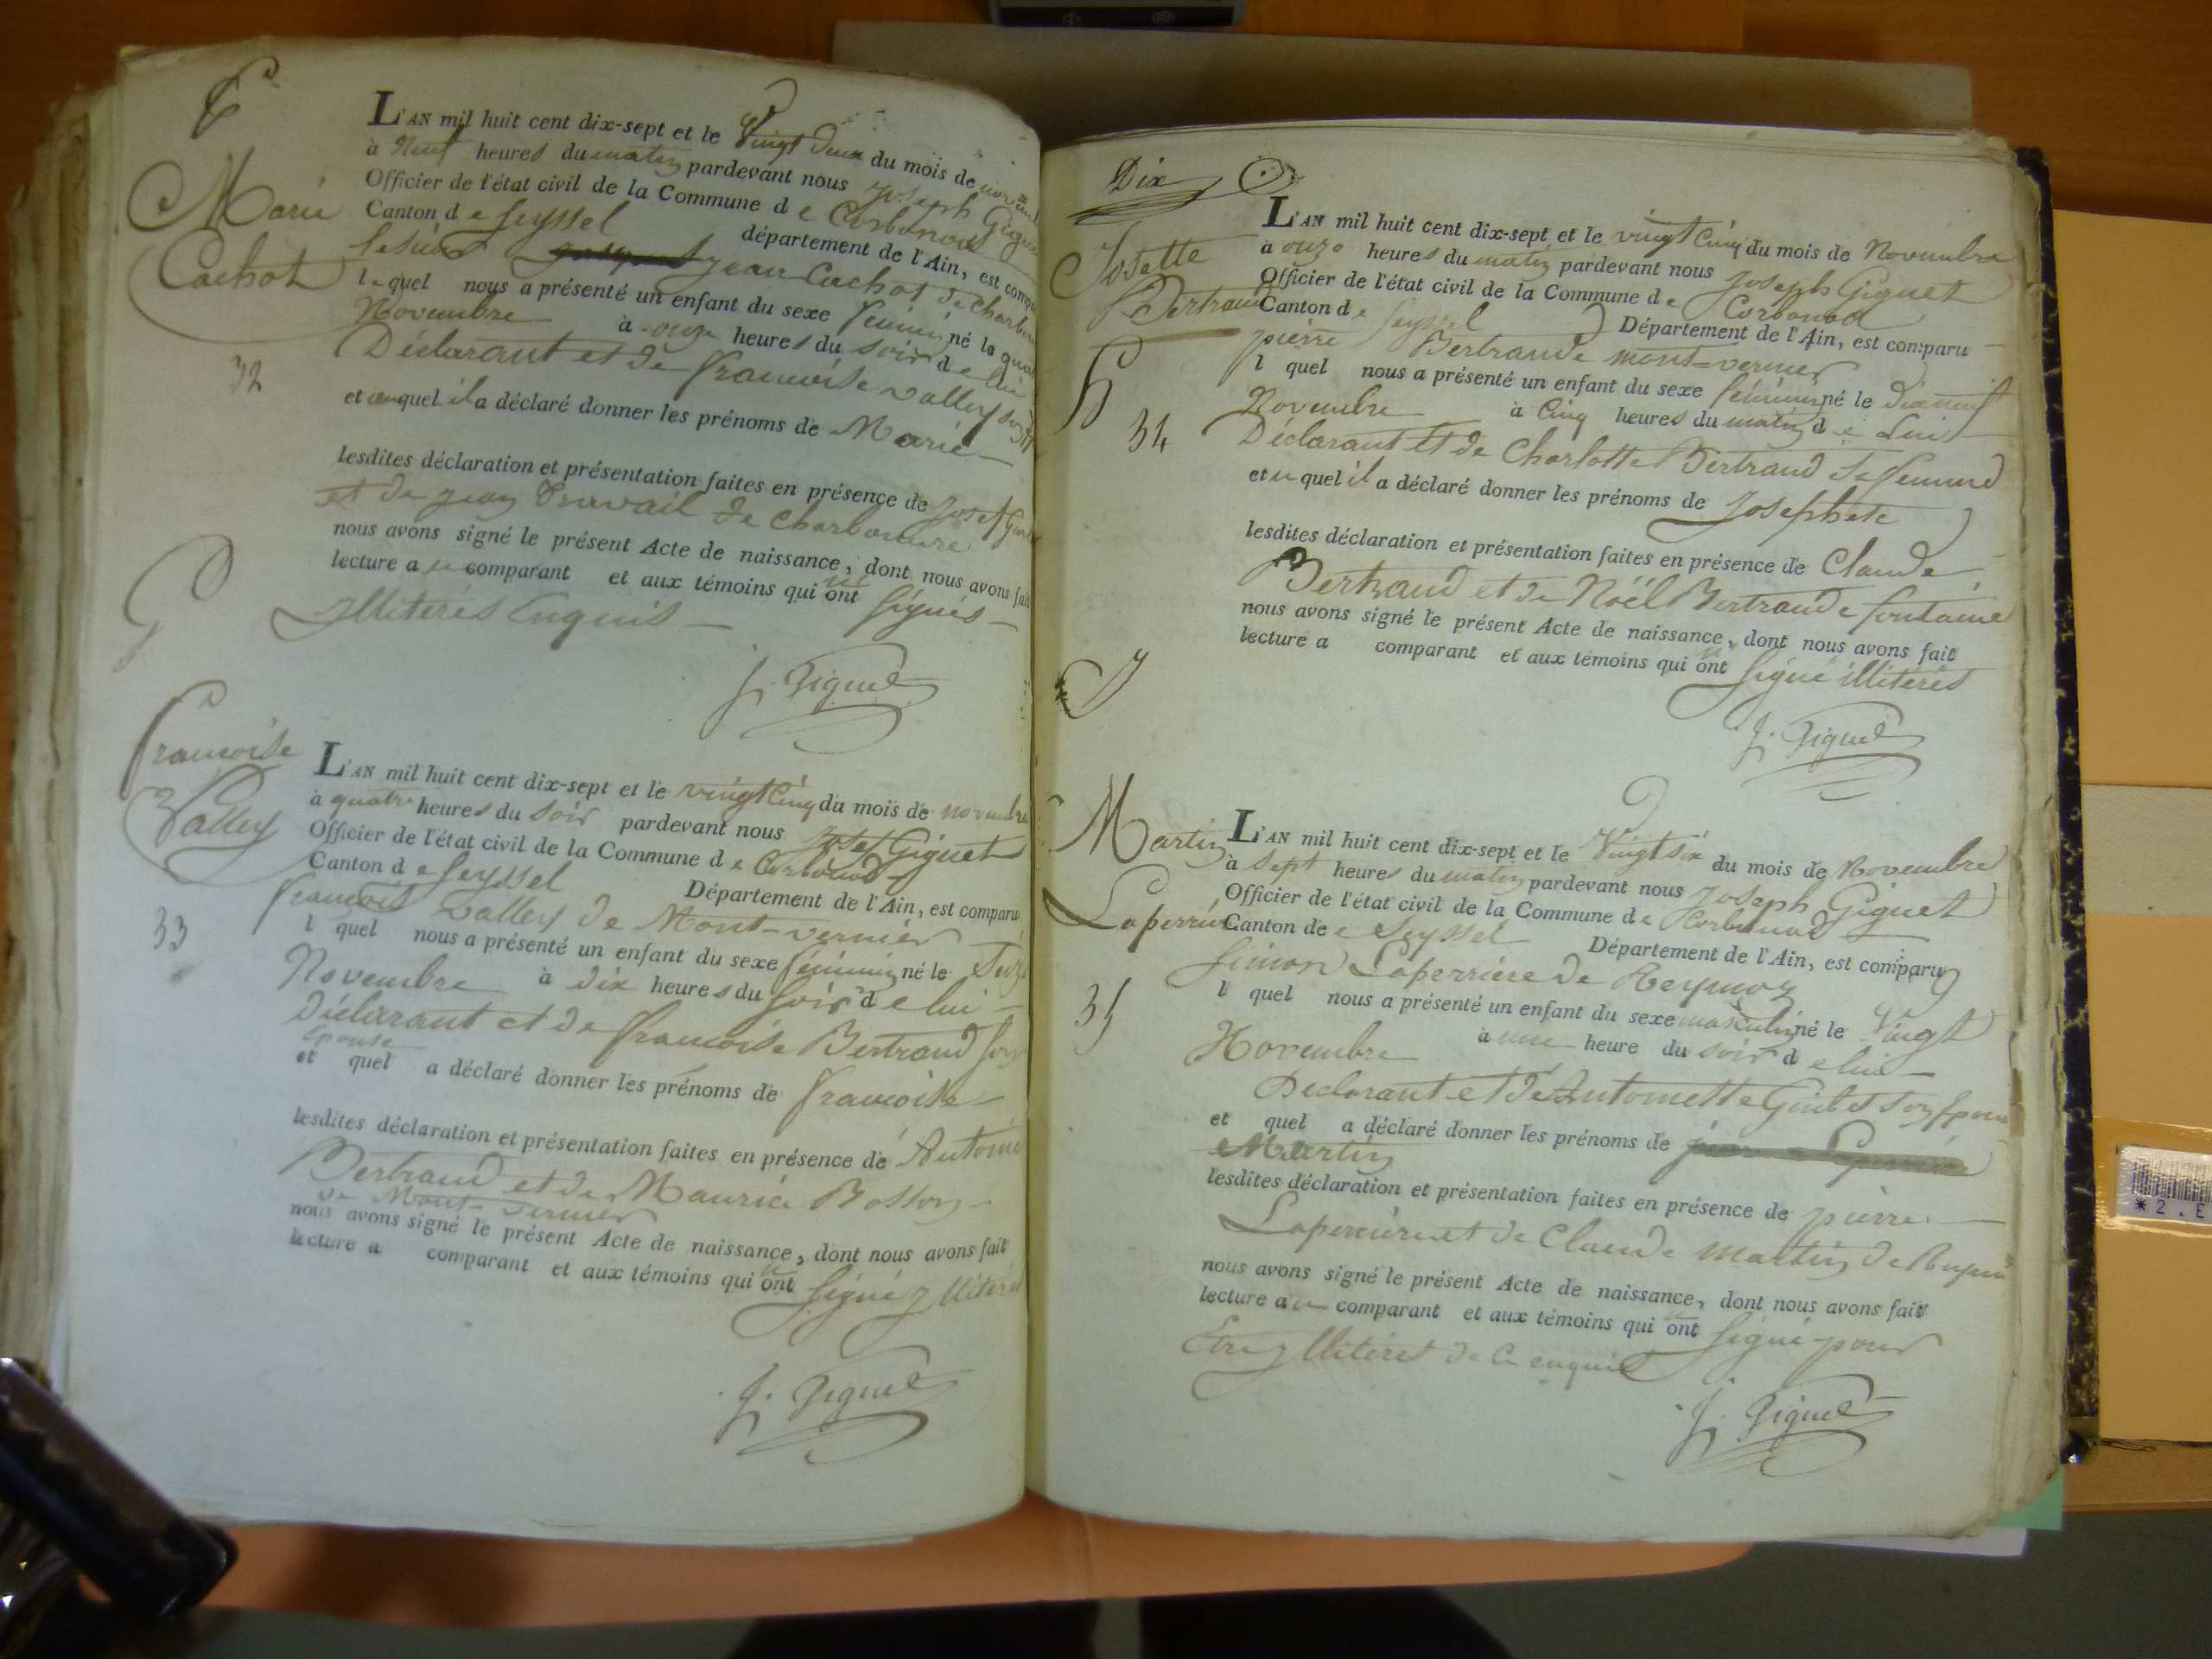 Marie
Cachot
32
L'AN mil huit cent dix-sept et le Vingt deux du mois de
à Neuf heures du matin pardevant nous Joseph
Officier de l'état civil de la Commune de Corbonod
Canton de Seyssel département de l'Ain, est
jean Cachot de
lequel nous a présenté un enfant du sexe féminin né le
Novembre à onze heures du soir de lui
Déclarant et de francoise valley
et auquel il a déclaré donner les prénoms de Marie
lesdites déclaration et présentation faites en présence de Josef
et de jean Travail de Charbonure
nous avons signé le présent Acte de naissance, dont nous avons fait
lecture au comparant et aux témoins qui n'ont signés
jlliterés Enquis
J. Giguet
francoise
Valley
33
L'AN mil huit cent dix-sept et le vingt Cinq du mois de novembre
à quatre heures du soir pardevant nous Josef Giguet
Officier de l'état civil de la Commune de Corbonod
Canton de Seyssel Département de l'Ain, est comparu
françois valley de Mont-vernier
l quel nous a présenté un enfant du sexe féminin né le
Novembre à dix heures du soir de lui
Déclarant et de francoise Bertrand son
épouse
et quel a déclaré donner les prénoms de francoise
lesdites déclaration et présentation faites en présence de Antoine
Bertrand et de Maurice Bosson
de Mont-vernier
nous avons signé le présent Acte de naissance, dont nous avons fait
lecture a comparant et aux témoins qui n'ont signé
J. Giguet
Dix
Josette
Bertrand
34
L'AN mil huit cent dix-sept et le vingt Cinq du mois de Novembre
à onze heures du matin pardevant nous Joseph Giguet
Officier de l'état civil de la Commune de Corbonod
Canton de Seyssel Département de l'Ain, est comparu
pierre Bertrand de mont-vernier
l quel nous a présenté un enfant du sexe féminin né le dixneuf
Novembre à Cinq heures du matin de Lui
Déclarant et de Charlotte Bertrand sa femme
et quel il a déclaré donner les prénoms de Josephete
lesdites déclaration et présentation faites en présence de Claude
Bertrand et de Nöel Bertrand de fontaine
nous avons signé le présent Acte de naissance, dont nous avons fait
lecture a comparant et aux témoins qui n'ont signé illiterés
J. Giguet
Martin
Laperriere
35
L'AN mil huit cent dix-sept et le Vingt six du mois de Novembre
à sept heures du matin pardevant nous Joseph Giguet
Officier de l'état civil de la Commune de Corbonod
Canton de Seyssel Département de l'Ain, est comparu
Simon Laperriere de
l quel nous a présenté un enfant du sexe masculin né le Vingt
Novembre à une heure du soir de lui
Déclarant et de Antoinette son
et quel a déclaré donner les prénoms de
Martin
lesdites déclaration et présentation faites en présence de pierre
Laperriere et de Claude Martin de
nous avons signé le présent Acte de naissance, dont nous avons fait
lecture au comparant et aux témoins qui n'ont signé pour
Etre jlliterés de ce enquis
J. Giguet
*2.E